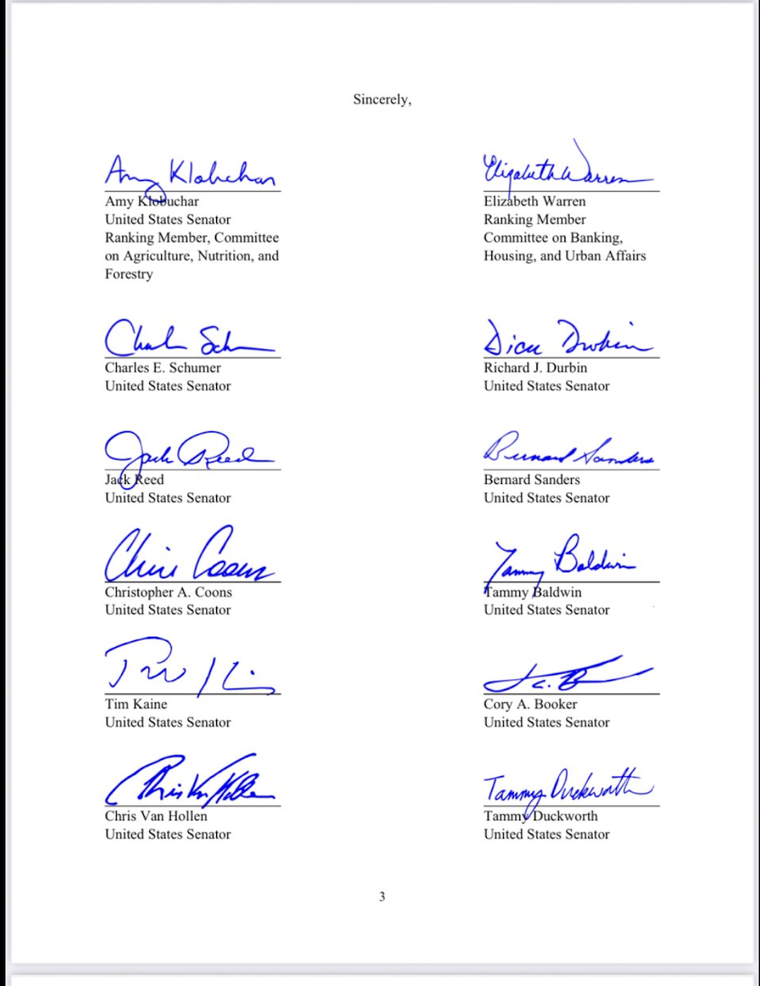 Sincerely,
Amy Klobuchar
Elizabeth Warren
Amy Klobuchar
United States Senator
Ranking Member, Committee
on Agriculture, Nutrition, and
Forestry
Elizabeth Warren
Ranking Member
Committee on Banking,
Housing, and Urban Affairs
Charles E. Schumer
United States Senator
Dick Durbin
Richard J. Durbin
United States Senator
Jack Reed
Jack Reed
United States Senator
Bernard Sanders
Bernard Sanders
United States Senator
Chris Coons
Christopher A. Coons
United States Senator
Tammy Baldwin
Tammy Baldwin
United States Senator
Tim Kaine
United States Senator
Cory A. Booker
United States Senator
Chris Van Hollen
Chris Van Hollen
United States Senator
Tammy Duckworth
Tammy Duckworth
United States Senator
3